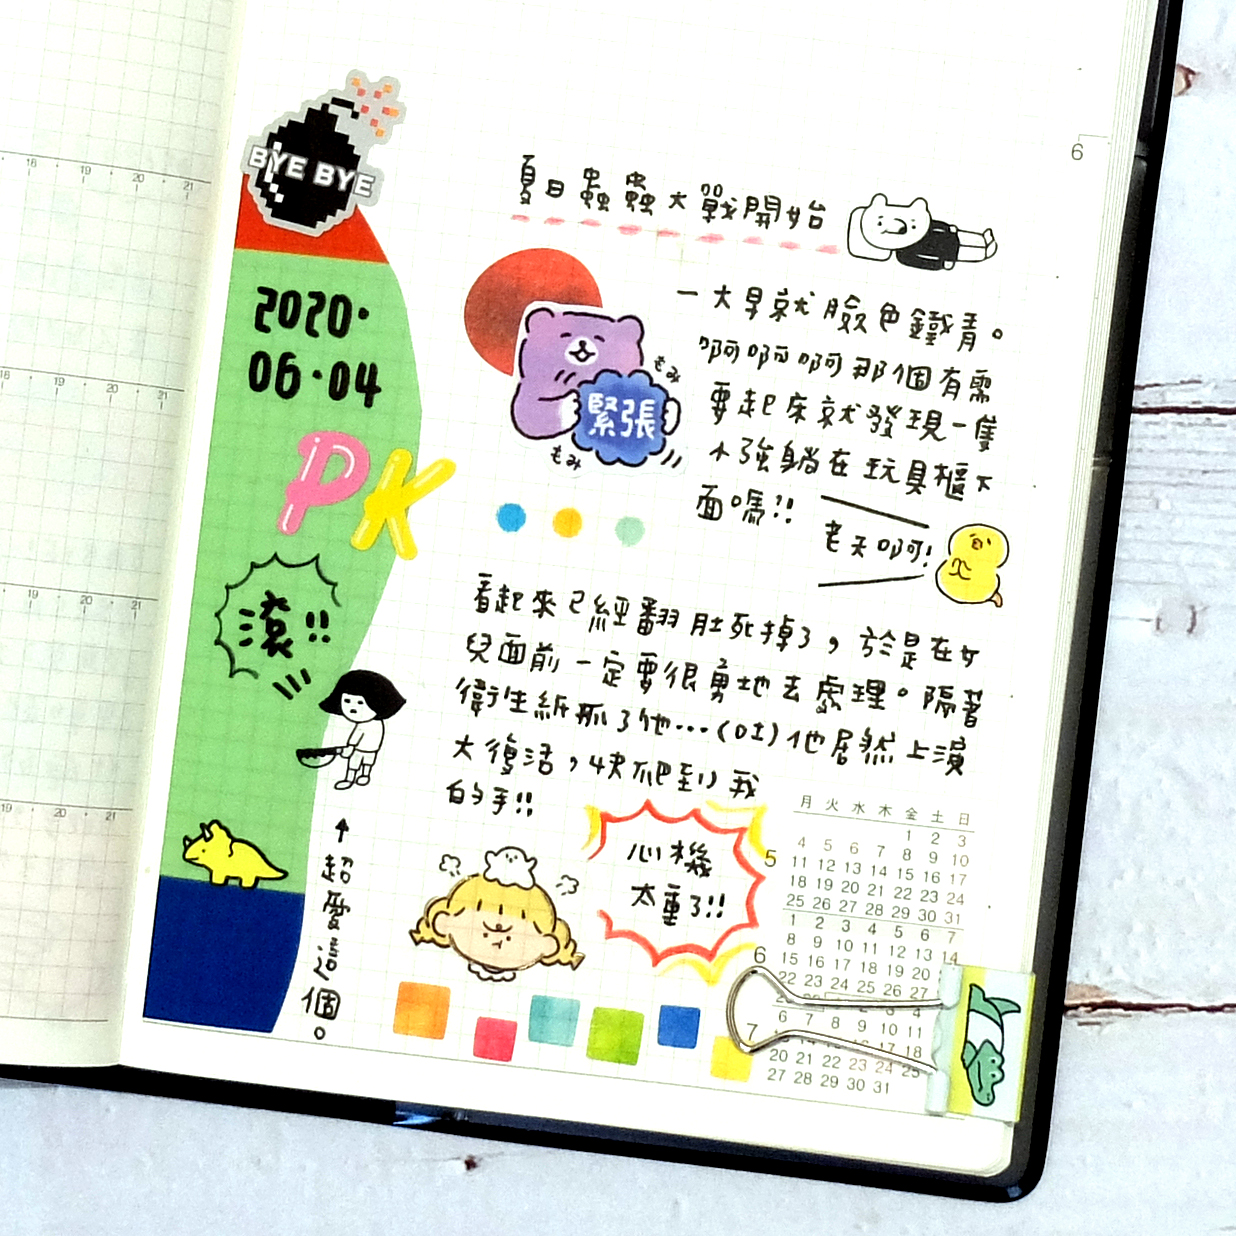 18 19 20 21
18 19 20 21
18 19 20 21
19 20 21
6
BYE BYE
2020.
06.04
PK
滾!!
↑超愛這個。
夏日蟲蟲大戰開始
一大早就臉色鐵青。
啊啊啊那個有需
要起床就發現一隻
小強躺在玩具櫃下
面嗎!!
老天啊!
もみ
緊張
もみ
看起來已經翻肚死掉了,於是在女
兒面前一定要很勇地去處理。隔著
衛生紙抓了他…(吐)他居然上演
大復活,快爬到我
的手!!
心機
太重了!!
月 火 水 木 金 土 日
1 2 3
4 5 6 7 8 9 10
5
11 12 13 14 15 16 17
18 19 20 21 22 23 24
25 26 27 28 29 30 31
1 2 3 4 5 6 7
8 9 10 11 12 13 14
6
15 16 17 18 19 20
22 23 24 25 26 27
6 7 8 9 10 11
7
17 18
20 21 22 23 24 25
27 28 29 30 31